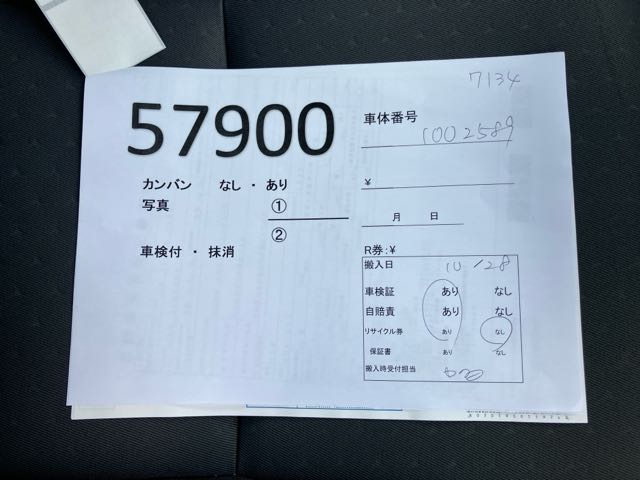 7134
57900
車体番号 1002589
カンバン なし ・ あり
¥
写真 ①
②
月 日
車検付 ・ 抹消
R券:¥
搬入日 10/28
車検証 あり なし
自賠責 あり なし
リサイクル券 あり なし
保証書 あり なし
搬入時受付担当